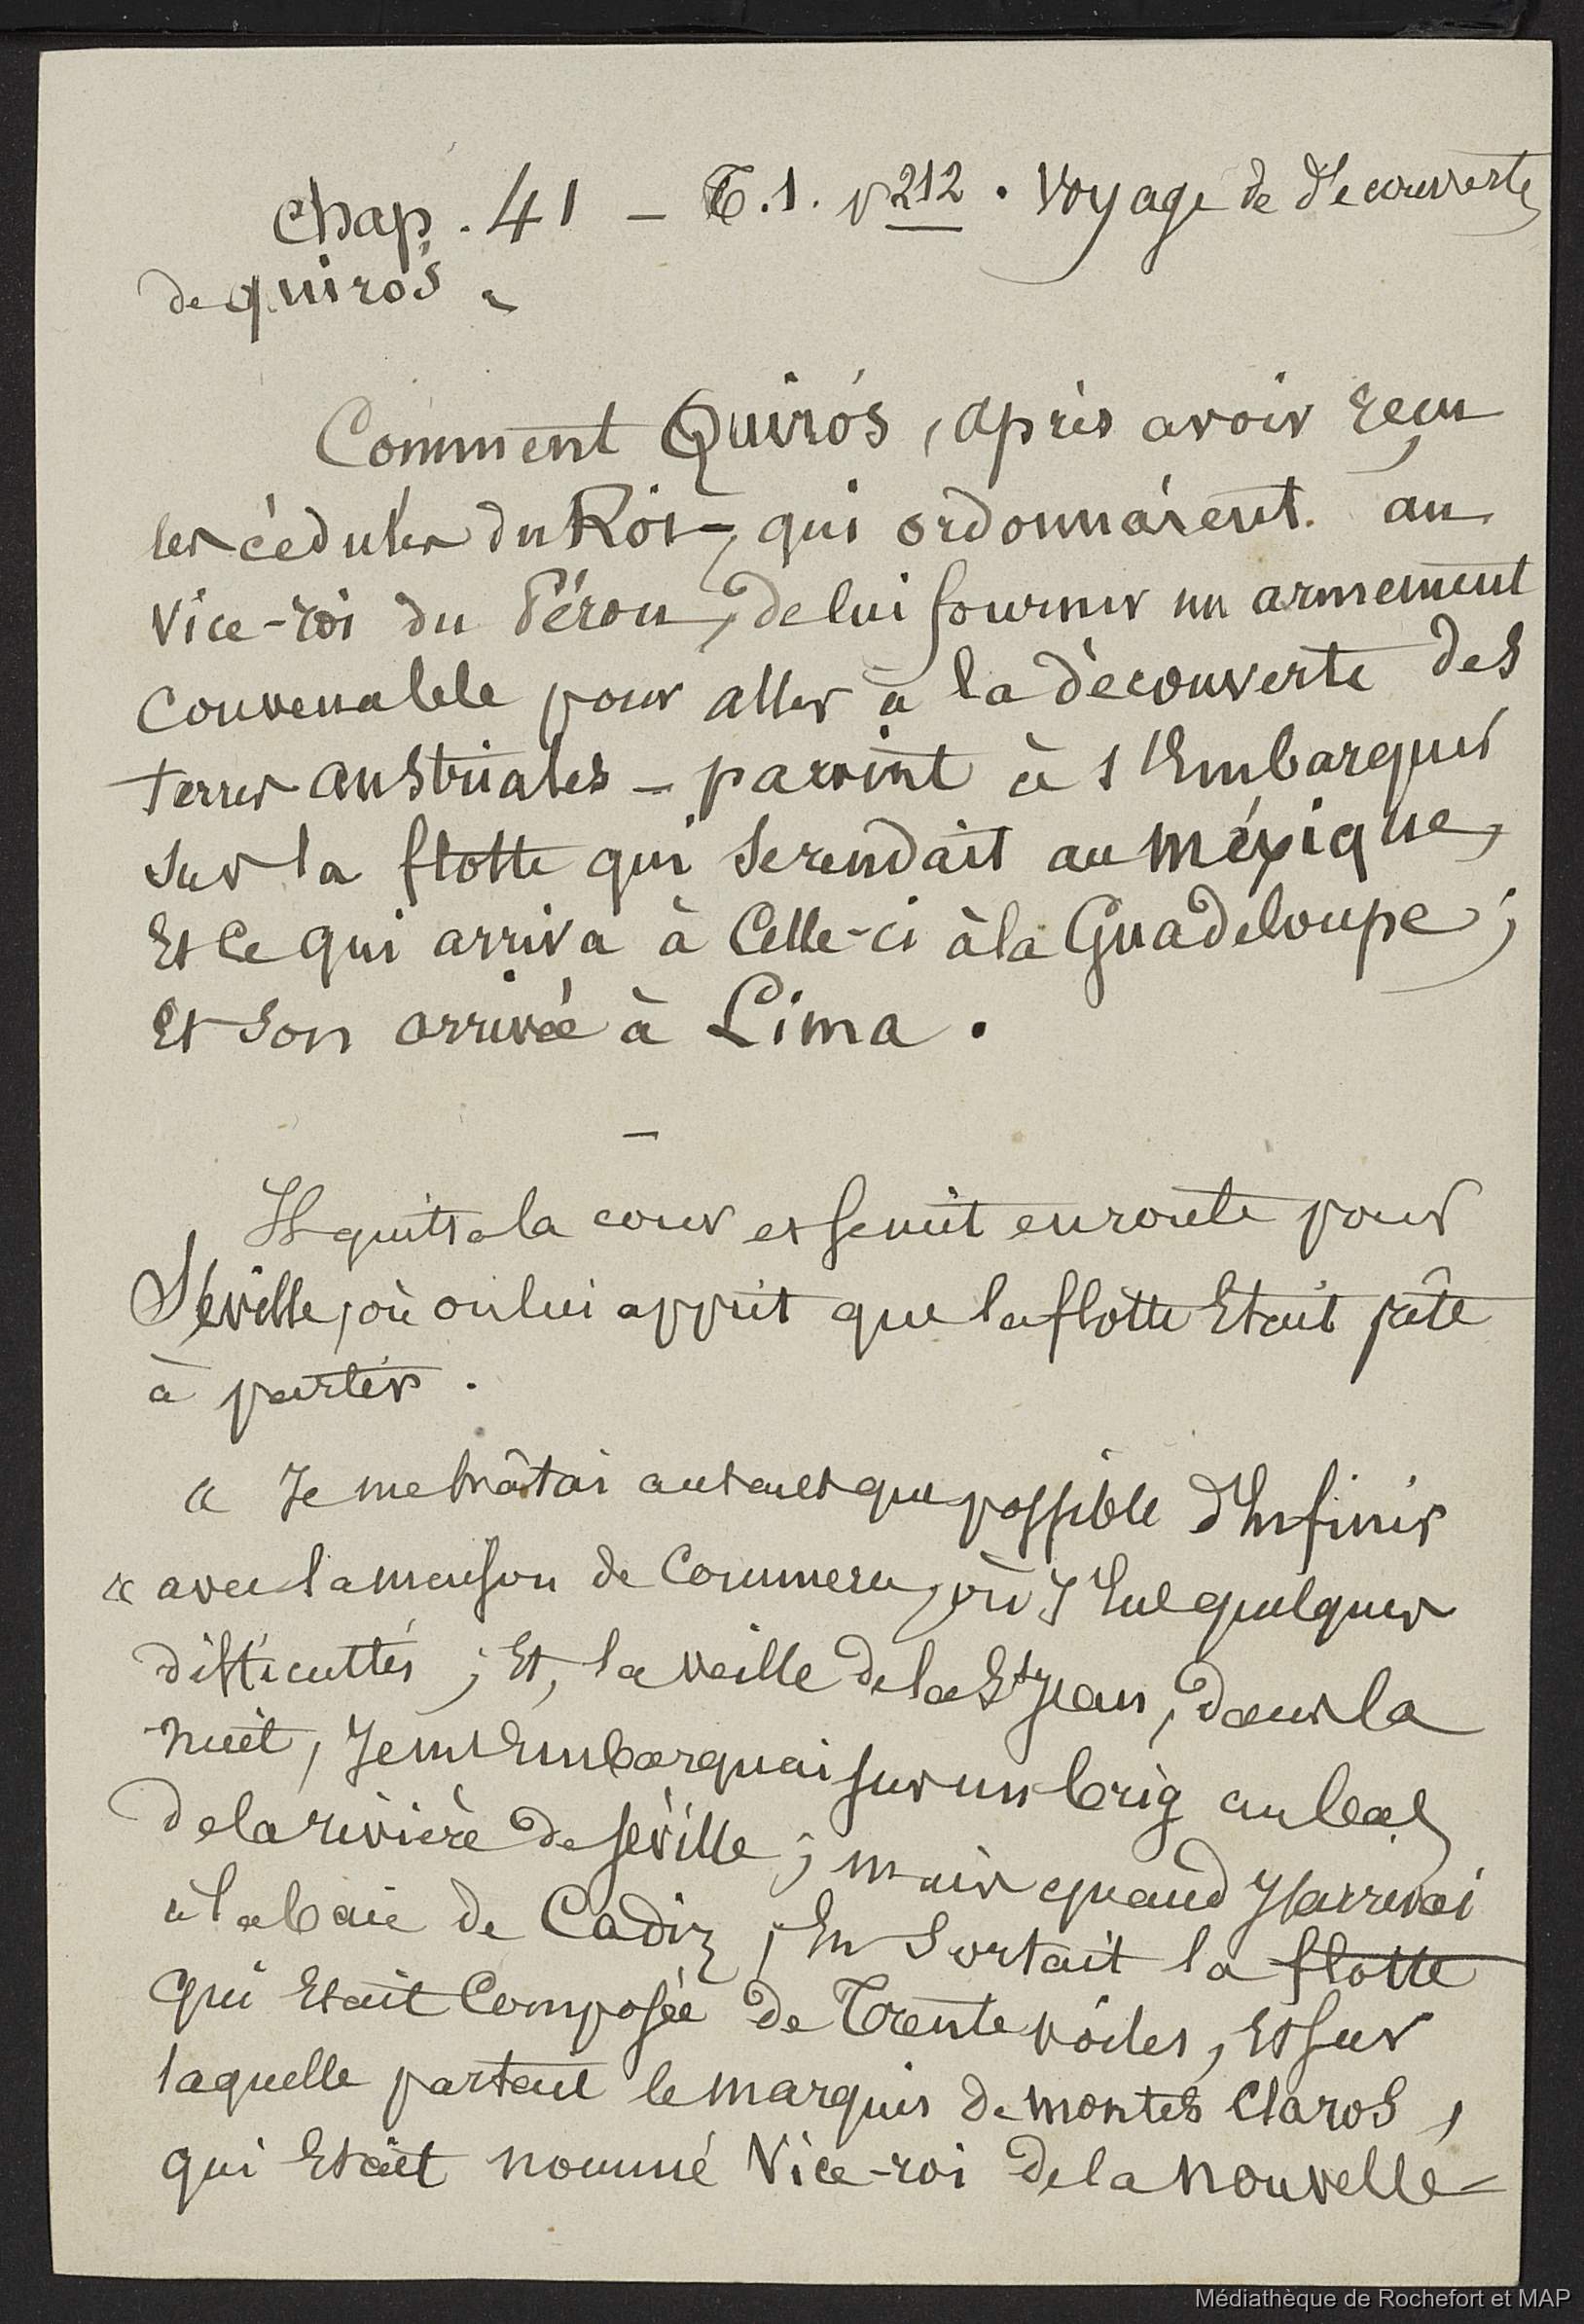 Chap. 41 – T.1. p 212. Voyage de découverte
de quirós.
Comment Quirós, après avoir reçu
les cédules du Roi –, qui ordonnaient. au
Vice-roi du Pérou, de lui fournir un armement
convenable pour aller à la découverte des
terres australes – parvint à s'Embarquer
sur la flotte qui se rendait au Méxique,
Et ce qui arriva à Celle-ci à la Guadeloupe;
Et son arrivée à Lima.
—
Il quitta la cour et se mit en route pour
Séville, où on lui apprit que la flotte Etait prête
à partir.
« Je me hâtai autant que possible d'En finir
« avec la maison de Commerce, où J'Eus quelques
difficultés; Et, la veille de la St Jean, dans la
nuit, Je m'Embarquai sur un brig au bas
de la rivière de Séville; mais quand J'arrivai
à la baie de Cadiz, En Sortait la flotte
qui Etait Composée de Trente voiles, Et sur
laquelle partait le marquis de Montes Claros,
qui Etait nommé Vice-roi de la Nouvelle-
Médiathèque de Rochefort et MAP